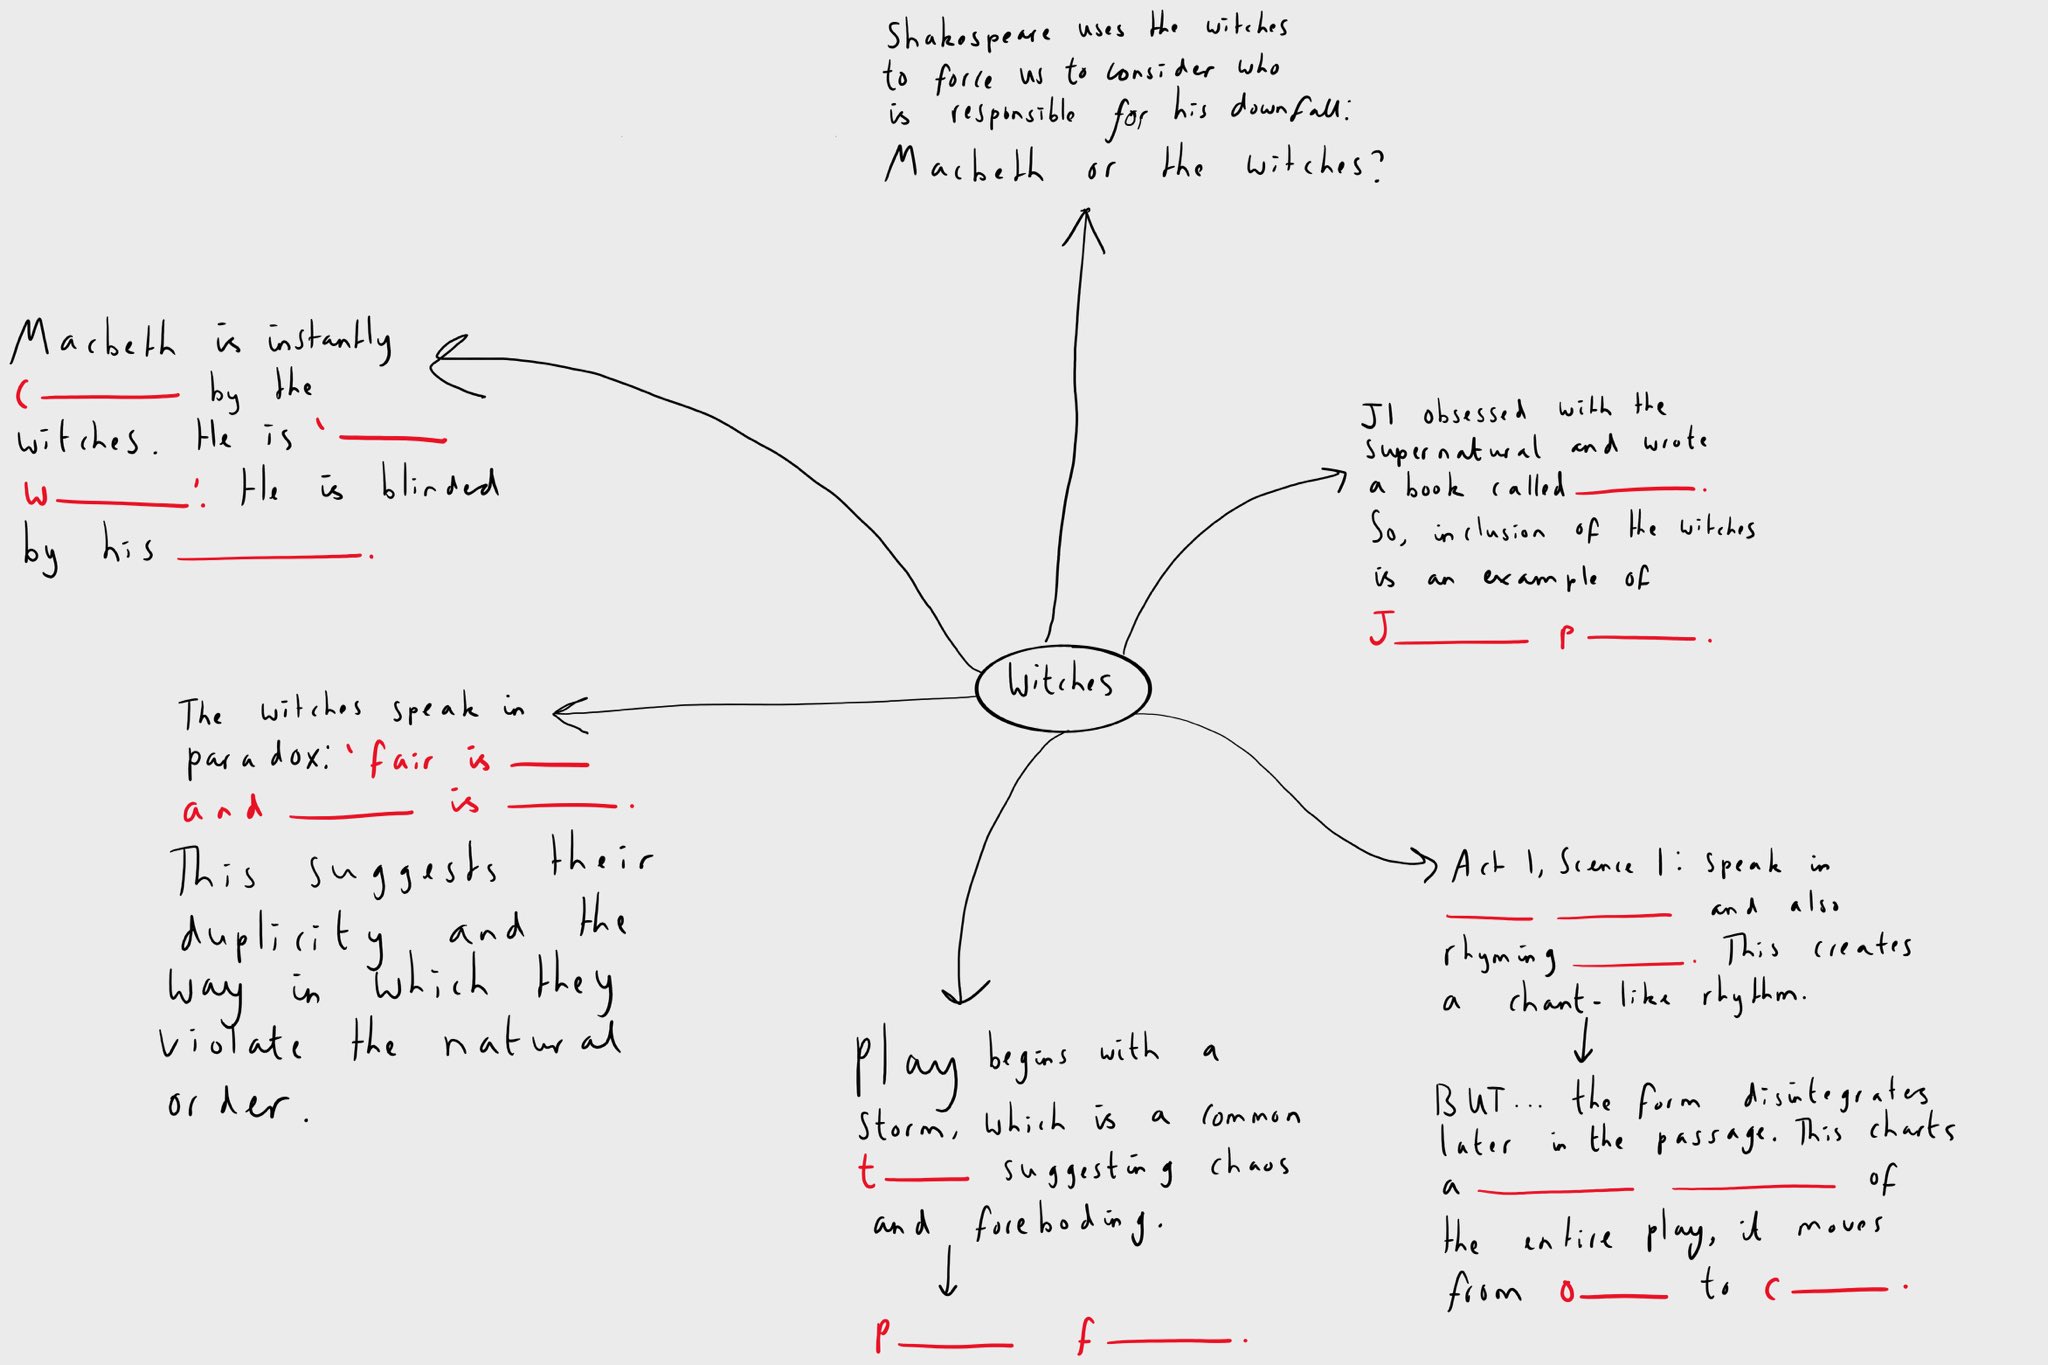 Shakespeare uses the witches
to force us to consider who
is responsible for his downfall:
Macbeth or the witches?
Macbeth is instantly
C ______ by the
witches. He is '______
w______'. He is blinded
by his ______.
JI obsessed with the
supernatural and wrote
a book called ______.
So, inclusion of the witches
is an example of
J______ p______.
Witches
The witches speak in
paradox: 'fair is ______
and ______ is ______.
This suggests their
duplicity and the
way in which they
violate the natural
order.
Play begins with a
storm, which is a common
t______ suggesting chaos
and foreboding.
p______ f______.
Act 1, Scence 1: speak in
______ ______ and also
rhyming ______. This creates
a chant-like rhythm.
BUT... the form disintegrates
later in the passage. This charts
a ______ ______ of
the entire play, it moves
from o______ to c______.